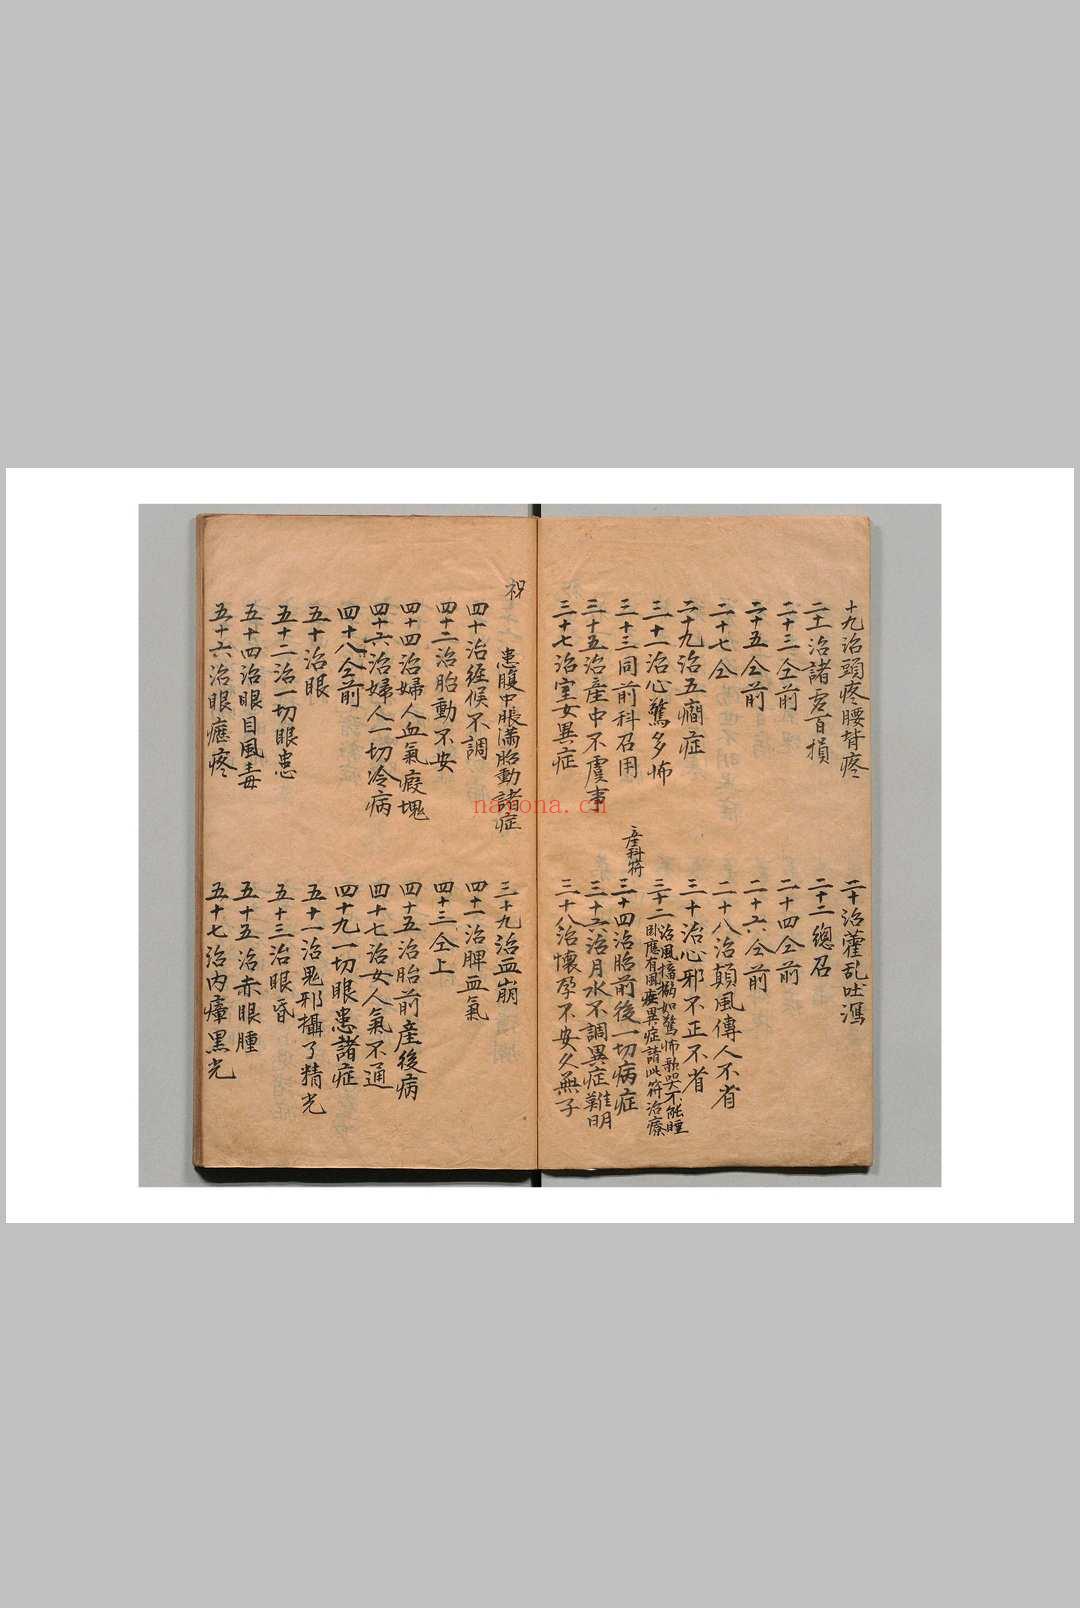 十九治頭疼腰背疼
二十治藿乱吐瀉
二十一治諸虗百損
二十二總召
二十三仝前
二十四仝前
二十五仝前
二十六仝前
二十七仝
二十八治顛風傳人不省
二十九治五癎症
三十治心邪不正不省
三十一治心驚多怖
三十二治風搐搦如驚怖歌哭不能睡
卧應有風疾異症請此符治療
三十三同前科召用
產科符
三十四治胎前後一切病症
三十五治產中不虞事
三十六治月水不調異症難明
三十七治室女異症
三十八治懷孕不安久無子
祝
患腹中脹满胎動諸症
三十九治血崩
四十治经候不調
四十一治脾血氣
四十二治胎動不安
四十三仝上
四十四治婦人血氣癥塊
四十五治胎前產後病
四十六治婦人一切冷病
四十七治女人氣不通
四十八仝前
四十九一切眼患諸症
五十治眼
五十一治鬼邪攝了精光
五十二治一切眼患
五十三治眼昏
五十四治眼目風毒
五十五治赤眼腫
五十六治眼癮疼
五十七治内瘴黑光
nayona.cn